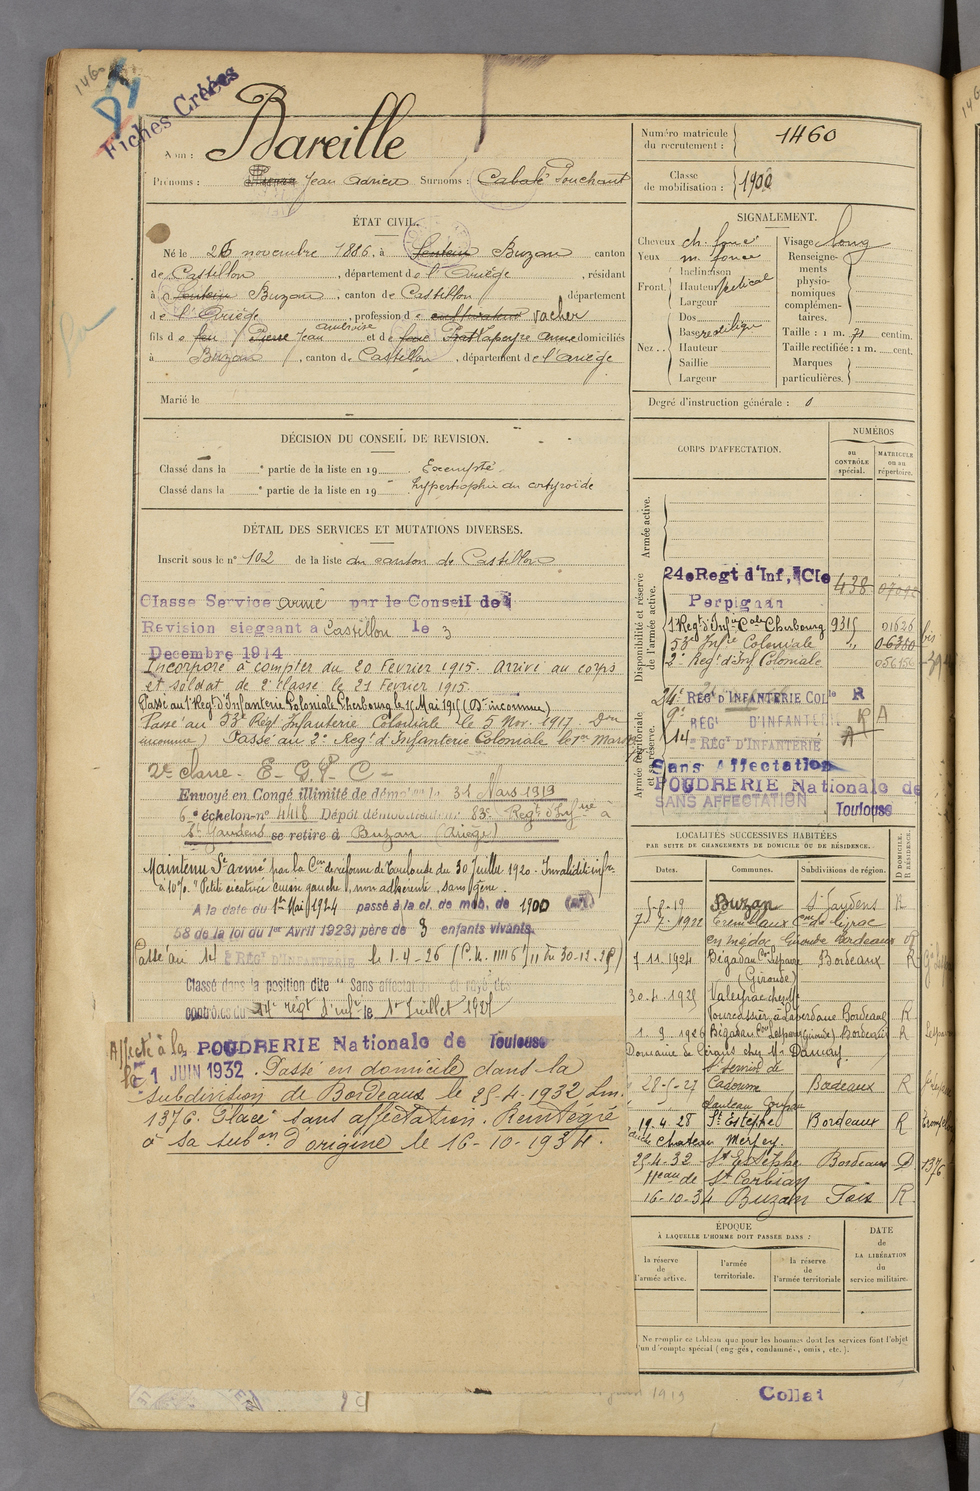 1460
Fiches Créées
Nom : Bareille
Prénoms : Jean Adrien Surnoms :
Numéro matricule du recrutement : 1460
Classe de mobilisation : 1900
ÉTAT CIVIL.
Né le 26 novembre 1886, à Sentein Buzan canton
de Castillon, département de l'Ariège, résidant
à Sentein Buzan, canton de Castillon département
de l'Ariège, profession de cultivateur vacher
fils de feu Pierre Jean et de Lapeyre Anne domiciliés
à Buzan, canton de Castillon, département de l'Ariège
Marié le
SIGNALEMENT.
Cheveux ch. foncé
Yeux m. foncé
Front Inclinaison
Hauteur vertical
Largeur
Nez Dos
Base rectiligne
Hauteur
Saillie
Largeur
Visage long
Renseignements physionomiques complémentaires.
Taille : 1 m. 71 centim.
Taille rectifiée : 1 m. cent.
Marques particulières.
Degré d'instruction générale : 0
DÉCISION DU CONSEIL DE REVISION.
Classé dans la e partie de la liste en 19 Exempté
Classé dans la e partie de la liste en 19 hypertrophie du corps thyroïde
DÉTAIL DES SERVICES ET MUTATIONS DIVERSES.
Inscrit sous le n° 102 de la liste du canton de Castillon
Classe Service armé par le Conseil de
Revision siegeant a Castillon le 3
Decembre 1914
Incorporé à compter du 20 Février 1915. Arrivé au corps
et soldat de 2e classe le 21 Février 1915.
Passé au 1er Regt d'Infanterie Coloniale Cherbourg le 15 Mai 1915 (Don inconnue)
Passé au 53e Regt Infanterie Coloniale le 5 Nov. 1917. Don
inconnue) Passé au 2e Regt d'Infanterie Coloniale le 1er Mars
2e classe - E - G. P - C -
Envoyé en Congé illimité de le 31 Mars 1919
6e échelon n° 4418 Dépôt démobilisateur 83e Regt d'Infrie à
St Gaudens se retire à Buzan (Ariège)
Maintenu St armé par la Con de réforme de Toulouse du 30 Juillet 1920. Invalidité infre
à 10%. "Petite cicatrice cuisse gauche, non adhérente, sans gêne.
A la date du 1er Mai 1924 passé à la cl. de mob. de 1900 (art.
58 de la loi du 1er Avril 1923) père de 3 enfants vivants.
Passé au 14e RÉGt D'INFANTERIE le 1-4-26
Classé dans la position dite "Sans affectation" et rayé des
contrôles du 14e régt d'infie le 1er Juillet 1927
Affecté à la POUDRERIE Nationale de Toulouse
le 1 JUIN 1932. Passé en domicile dans la
subdivision de Bordeaux le 25-4-1932 Lm.
1376. Placé "sans affectation. Réintégré
à sa subon d'origine le 16-10-1934.
CORPS D'AFFECTATION.
NUMÉROS
au CONTRÔLE spécial.
MATRICULE ou au répertoire.
Armée active.
Disponibilité et réserve de l'armée active.
24e Regt d'Inf, Cle 438
Perpignan
1er Regt d'Infie Cale Cherbourg 9315 01626
53e Infie Coloniale " 06380 bis
2e Regt d'Inf Coloniale
Armée territoriale et sa réserve.
24e RÉGt D'INFANTERIE COLle R
9e RÉGt D'INFANTERIE R A
14e RÉGt D'INFANTERIE A
Sans Affectation
POUDRERIE Nationale de
SANS AFFECTATION Toulouse
LOCALITÉS SUCCESSIVES HABITÉES
PAR SUITE DE CHANGEMENTS DE DOMICILE OU DE RÉSIDENCE.
Dates. Communes. Subdivisions de région. D DOMICILE. R RÉSIDENCE.
5-8-19 Buzan St Gaudens R
7-7-1922
en médoc Gironde Bordeaux R
7.11.1924 Bégadan Con Lesparre Bordeaux R
(Gironde)
30-4-1925 Valeyrac
Bordeaux R
1. 9. 1926 Bégadan Con Lesparre (Gironde) Bordeaux R
Domaine de chez Mr
St Seurin de
28-5-27 Cadourne Bordeaux R
19. 4. 28 St Estèphe Bordeaux R
Chateau Meyney.
25-4-32 St Estèphe Bordeaux D 1376
Hau de St Corbian
16-10-34 Buzan Foix R
ÉPOQUE
À LAQUELLE L'HOMME DOIT PASSER DANS :
la réserve de l'armée active.
l'armée territoriale.
la réserve de l'armée territoriale
DATE de LA LIBÉRATION du service militaire.
Ne remplir ce tableau que pour les hommes dont les services font l'objet
d'un décompte spécial (engagés, condamnés, omis, etc.).
Collat